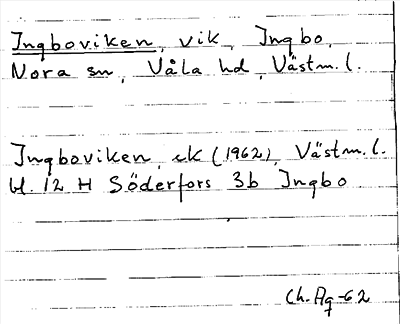 Ingboviken, vik, Ingbo,
Nora sn, Våla hd, Västm. l.
Ingboviken, ek (1962), Västm. l.
bl. 12 H Söderfors 3b Ingbo
Ch. Ag -62